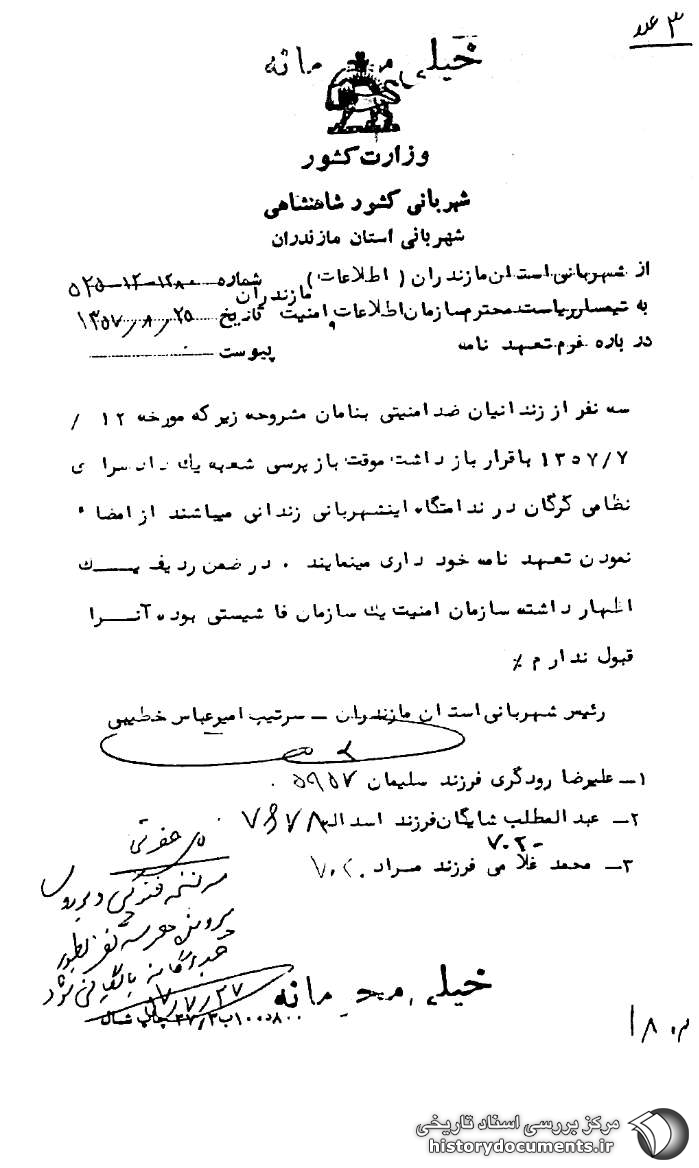 ۳ عدد
خیلی محرمانه
وزارت کشور
شهربانی کشور شاهنشاهی
شهربانی استان مازندران
از شهربانی استان مازندران (اطلاعات) شماره ۵۲۵-۱۲-۱۲۸۰
به تیمسار ریاست محترم سازمان اطلاعات و امنیت مازندران تاریخ ۱۳۵۷/۸/۲۵
درباره فرم تعهد نامه پیوست
سه نفر از زندانیان ضد امنیتی بنامان مشروحه زیر که مورخه ۱۲ /
۱۳۵۷/۷ با قرار بازداشت موقت بازپرسی شعبه یک دادسرای
نظامی گرگان در ندامتگاه اینشهربانی زندانی میباشند از امضاء
نمودن تعهد نامه خود داری مینمایند . در ضمن ردیف یک
اظهار داشته سازمان امنیت یک سازمان فاشیستی بوده آنرا
قبول ندارم ٪
رئیس شهربانی استان مازندران – سرتیپ امیرعباس خطیبی
۱– علیرضا رودگری فرزند سلیمان ۵۹۵۷ .
۲– عبدالمطلب شایگان فرزند اسداله ۷۶۷۸ .
۷۰۲۰
۳– محمد غلامی فرزند مراد ۷۰۲۰
سه نفر
خیلی محرمانه
چاپ شمال
۱۸۰۲
مرکز بررسی اسناد تاریخی
historydocuments.ir